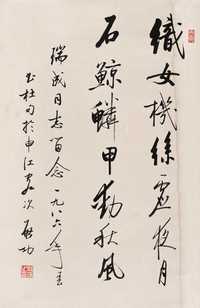 織女機絲虛夜月
石鯨鱗甲動秋風
瑞成同志百念一九八六年
書杜句於申江客次啟功